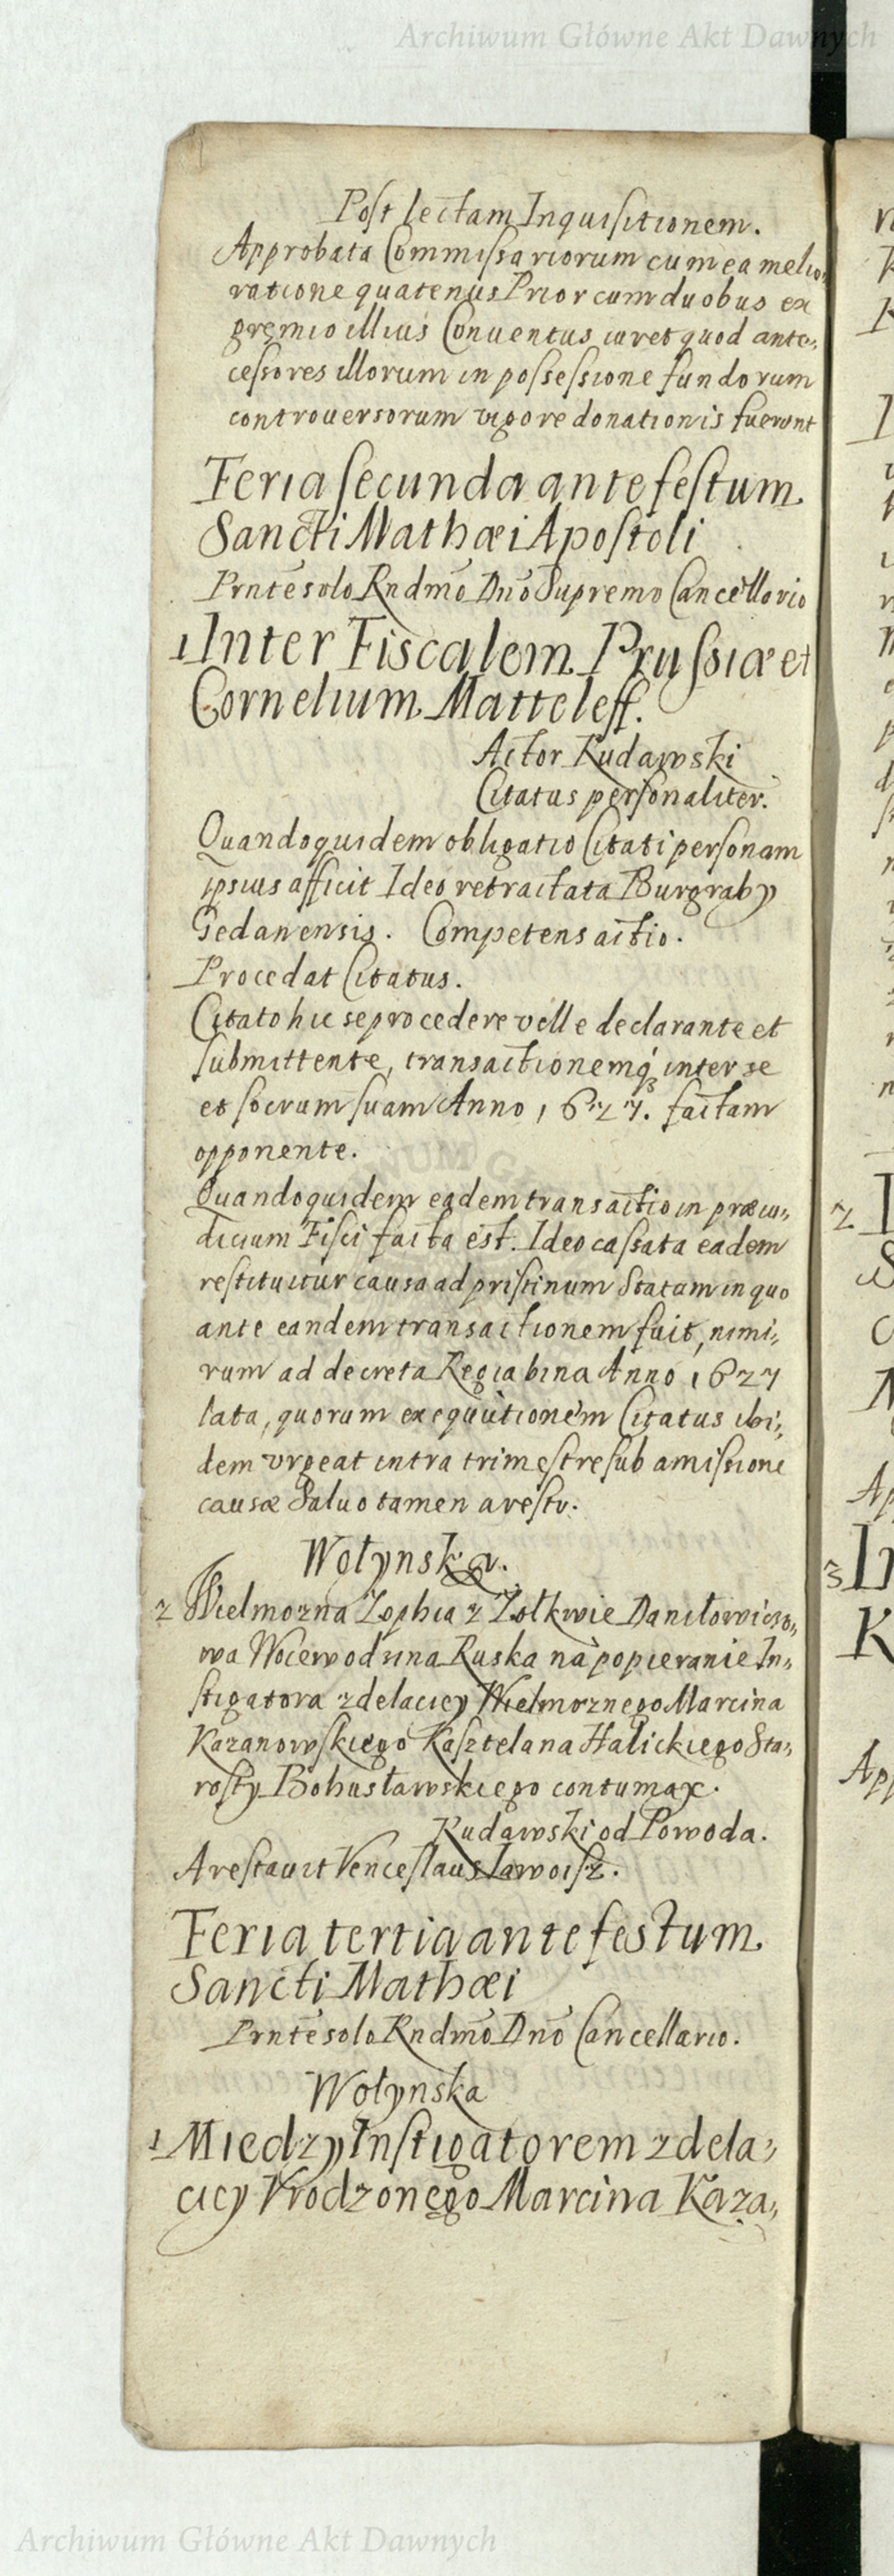 Archiwum Główne Akt Dawnych
Post lectam Inquisitionem.
Approbata Commissariorum cum ea melio,
ratione quatenus Prior cum duobus ex
gremio illius Conuentus iuret quod ante,
cessores illorum in possessione fundorum
controuersorum vigore donationis fuerunt
Feria secunda ante festum
Sancti Mathæi Apostoli
Prnte solo Rndmo Dno Supremo Cancellario
1 Inter Fiscalem Prussiæ et
Cornelium Matteleff.
Actor Rudawski
Citatus personaliter.
Quandoquidem obligatio Citati personam
ipsius afficit Ideo retractata Burgraby
Gedanensis. Competens actio.
Procedat Citatus.
Citato hic se procedere velle declarante et
submittente, transactionemq inter se
et socrum suam Anno 1627. factam
opponente.
Quandoquidem eadem transactio in præiu,
dicium Fisci facta est. Ideo cassata eadem
restituitur causa ad pristinum Statum in quo
ante eandem transactionem fuit, nimi,
rum ad decreta Regia bina Anno 1627
lata, quorum exequutionem Citatus ibi,
dem vrgeat intra trimestre sub amissione
causæ Saluo tamen arestu.
Wołynska.
2 Wielmozna Zophia z Zołkwie Daniłowiczo,
wa Woiewodzina Ruska na popieranie In,
stigatora z delaciey Wielmoznego Marcina
Kazanowskiego Kasztelana Halickiego Sta,
rosty Bohusławskiego contumax.
Rudawski od Powoda.
Arestauit Venceslaus Jawoisz.
Feria tertia ante festum
Sancti Mathæi
Prnte solo Rndmo Dno Cancellario.
Wołynska
1 Miedzy Instigatorem z dela,
ciey Vrodzonego Marcina Kaza,
Archiwum Główne Akt Dawnych